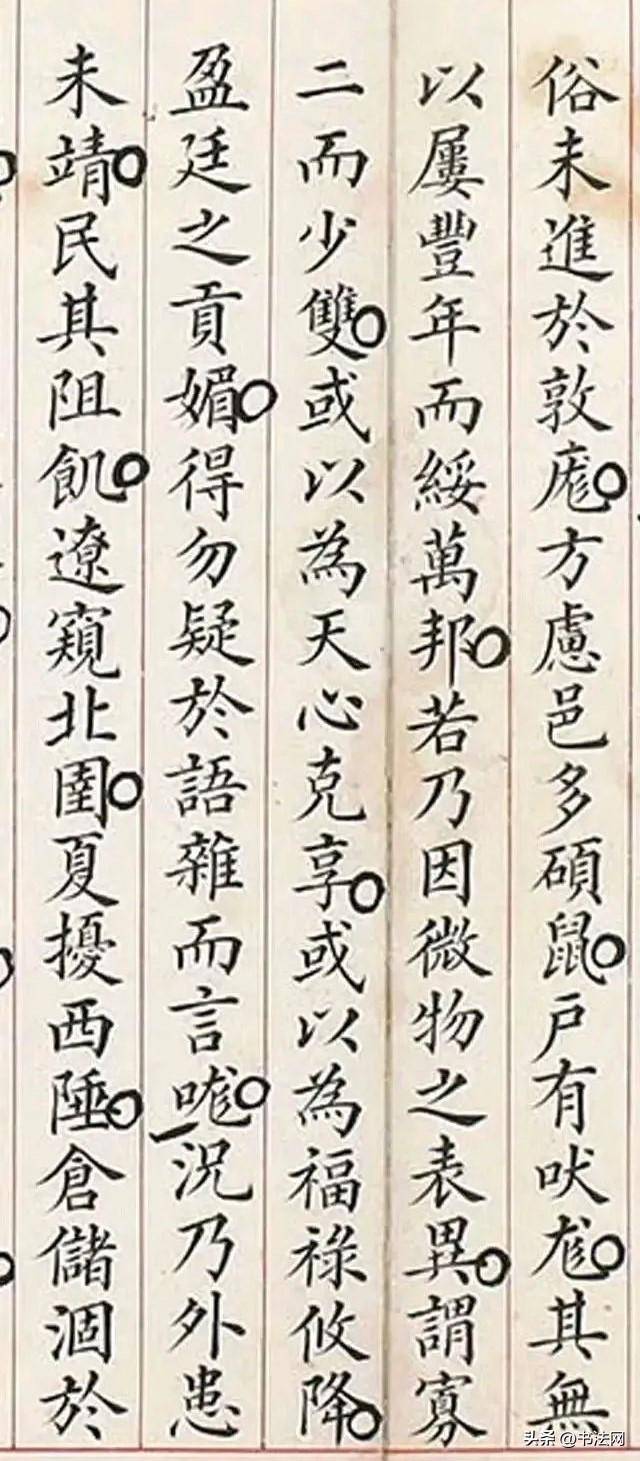 俗未進於敦庬方慮邑多碩鼠戶有吠尨其無
以屢豐年而綏萬邦若乃因微物之表異謂寡
二而少雙或以為天心克享或以為福祿攸降
盈廷之貢媚得勿疑於語雜而言哤況乃外患
未靖民其阻飢遼窺北圉夏擾西陲倉儲涸於
头条 @书法网